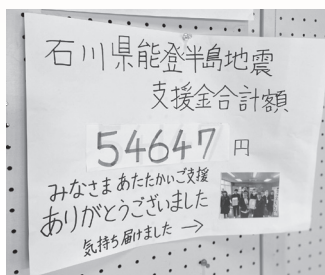 石川県能登半島地震
支援金合計額
54647円
みなさま あたたかいご支援
ありがとうございました
気持ち届けました →